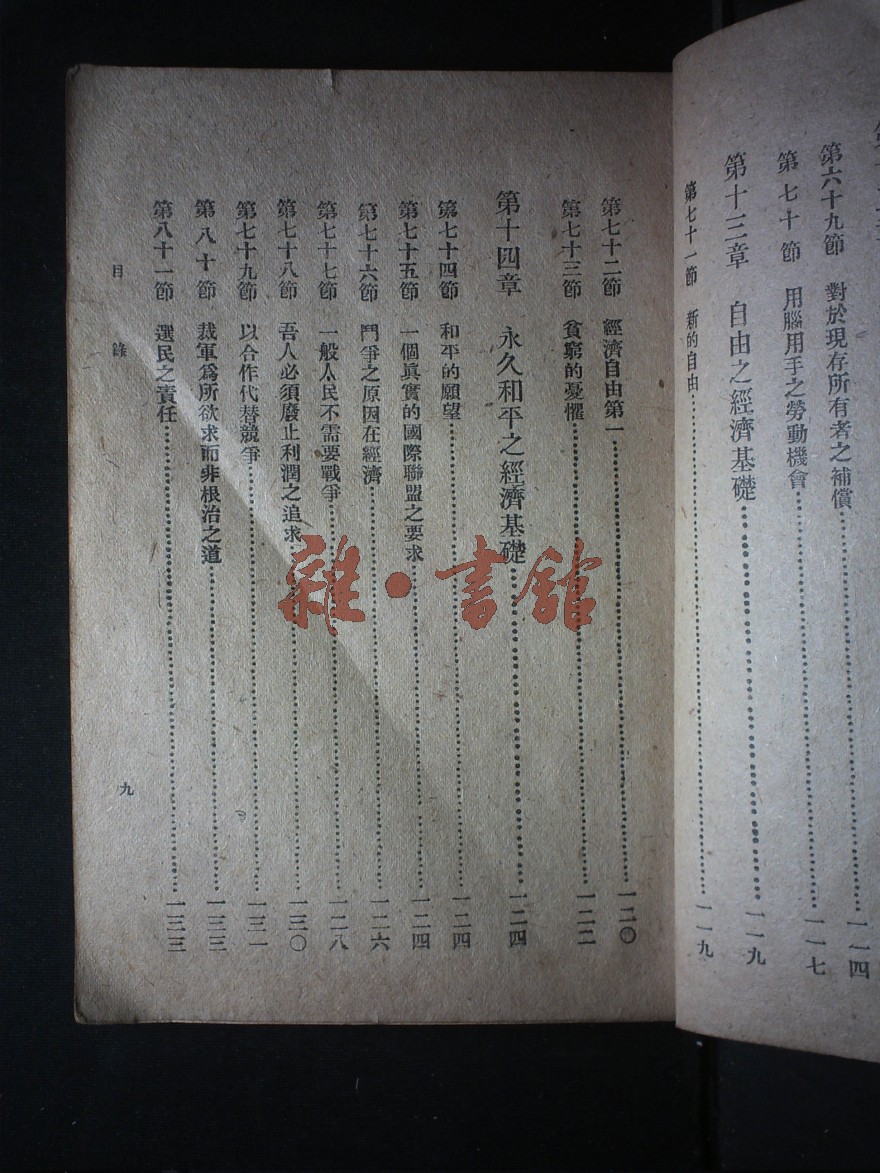 第六十九節　對於現存所有者之補償………一一四
第七十節　用腦用手之勞動機會………一一七
第十三章　自由之經濟基礎………一一九
第七十一節　新的自由………一一九
第七十二節　經濟自由第一………一二〇
第七十三節　貧窮的憂懼………一二二
第十四章　永久和平之經濟基礎………一二四
第七十四節　和平的願望………一二四
第七十五節　一個眞實的國際聯盟之要求………一二四
第七十六節　鬥爭之原因在經濟………一二六
第七十七節　一般人民不需要戰爭………一二八
第七十八節　吾人必須廢止利潤之追求………一三〇
第七十九節　以合作代替競爭………一三一
第八十節　裁軍爲所欲求而非根治之道………一三三
第八十一節　選民之責任………一三三
目錄　九
雜·書館